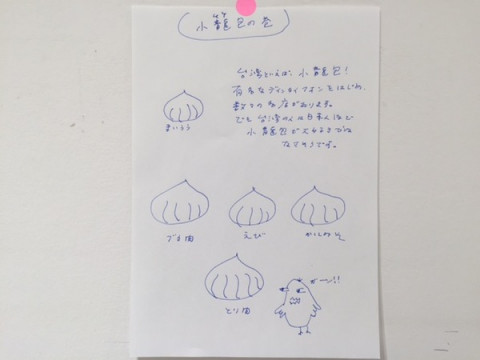 小籠包の巻
台湾といえば、小籠包！
有名なディンタイフォンをはじめ、
数々のお店があります。
でも台湾の人は日本人ほど
小籠包が大好きでは
なさそうです。
ブタ肉
えび
かにみそ
とり肉
ガーン!!